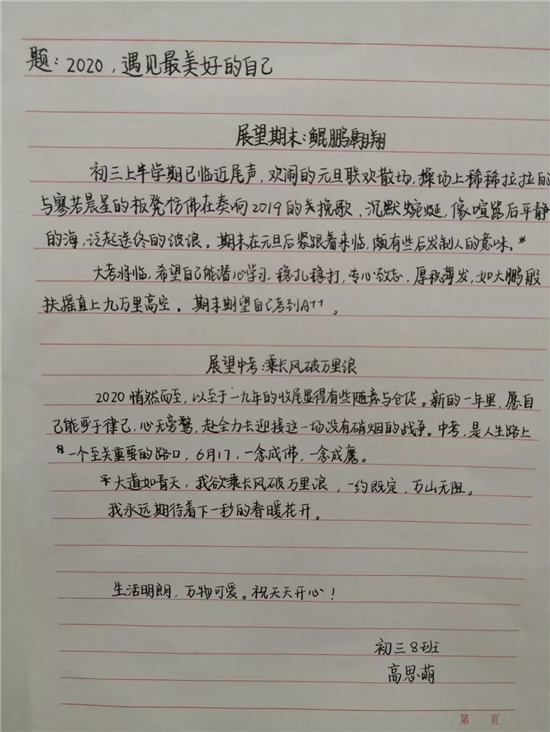 题：2020，遇见最美好的自己
展望期末：鲲鹏翱翔
初三上半学期已临近尾声，欢闹的元旦联欢散场，操场上稀稀拉拉的
与寥若晨星的板凳仿佛在奏响2019的关挽歌，沉默蜿蜒，像喧嚣后平静
的海，泛起迷佟的波浪。期末在元旦后紧跟着来临，颇有些后发制人的意味。
大考将临，希望自己能潜心学习，稳扎稳打，专心致志，厚积薄发，如大鹏般
扶摇直上九万里高空。期末期望自己考到A++。
展望中考：乘长风破万里浪
2020悄然而至，以至于一九年的收尾显得有些随意与仓促。新的一年里，愿自
己能严于律己，心无旁鹜，赴全力去迎接这一场没有硝烟的战争。中考，是人生路上
一个至关重要的路口，6月17，一念成佛，一念成魔。
*大道如青天，我欲乘长风破万里浪，一约既定，万山无阻。
我永远期待着下一秒的春暖花开。
生活明朗，万物可爱。祝天天开心！
初三8班
高思萌
第 页